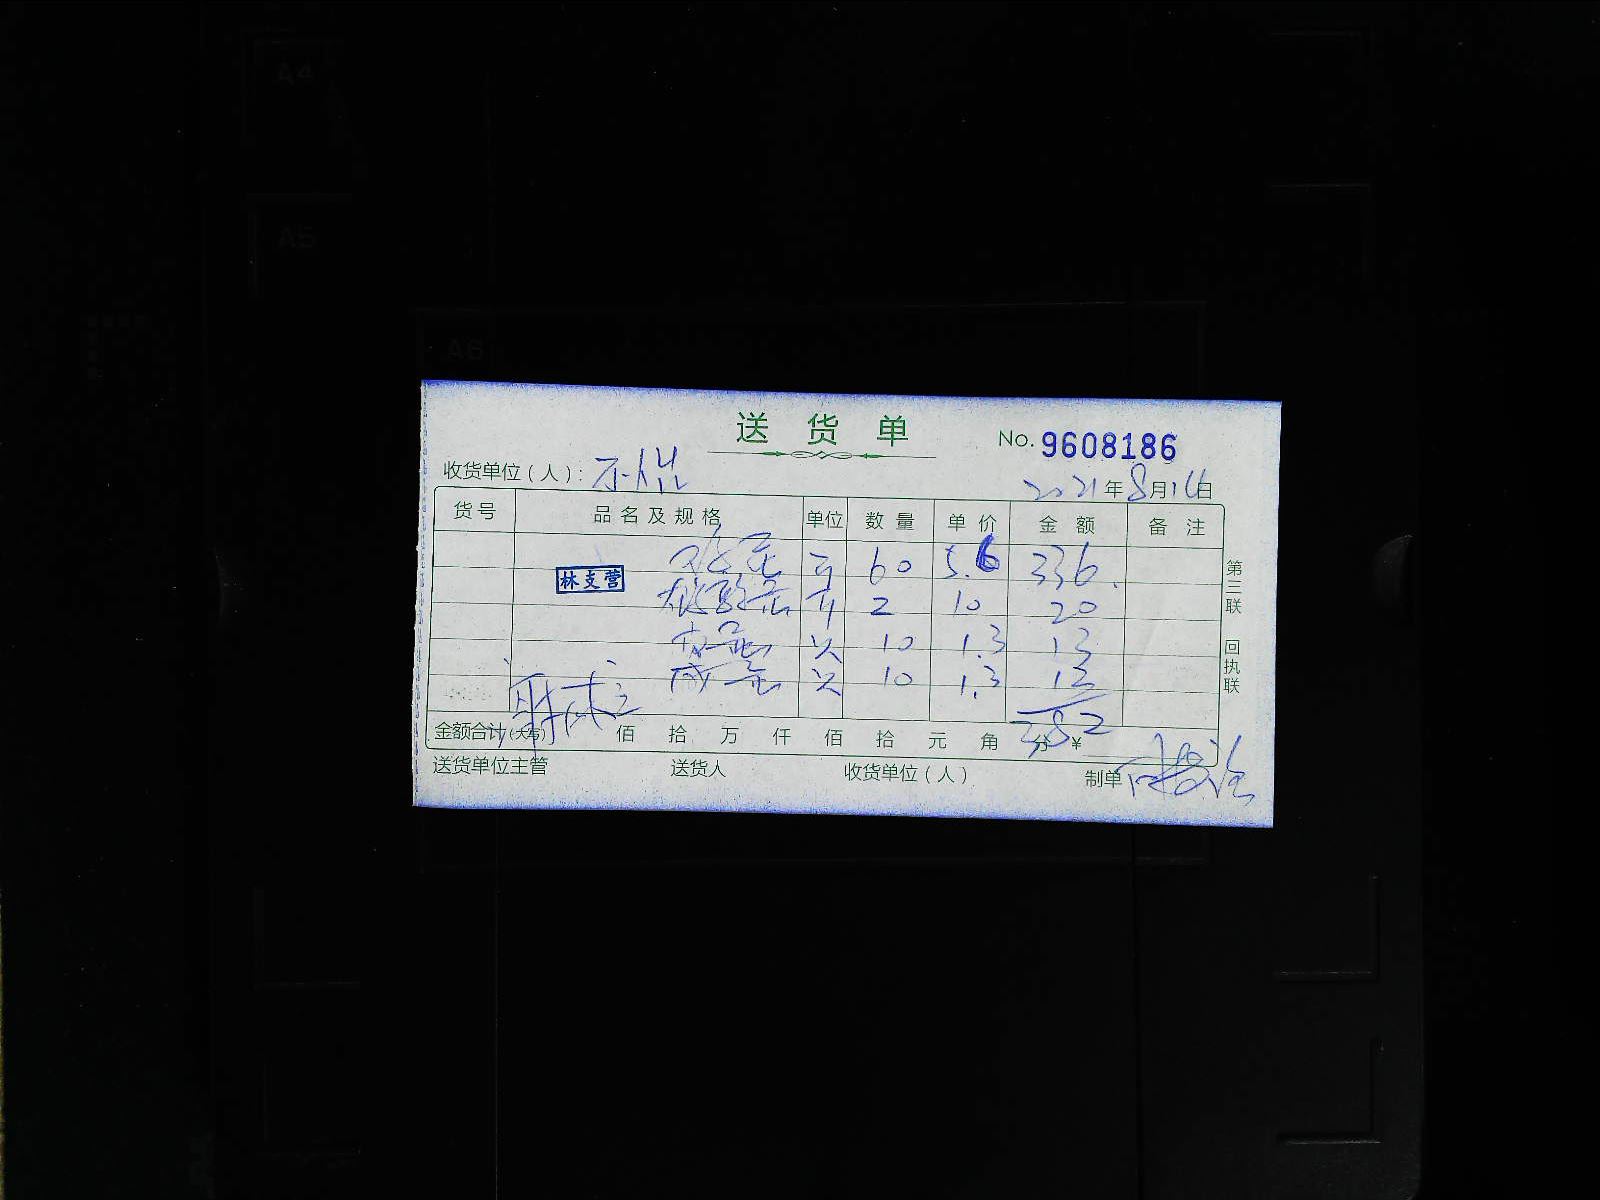 A4
A5
A6
送货单
No. 9608186
收货单位(人):
2021年8月16日
货号 品名及规格 单位 数量 单价 金额 备注
鸡蛋 斤 60 5.6 336
林支营
斤 2 10 20
皮蛋 只 10 1.3 13
咸蛋 只 10 1.3 13
382
金额合计(大写) 佰 拾 万 仟 佰 拾 元 角 分 ¥
送货单位主管 送货人 收货单位(人) 制单
第三联 回执联